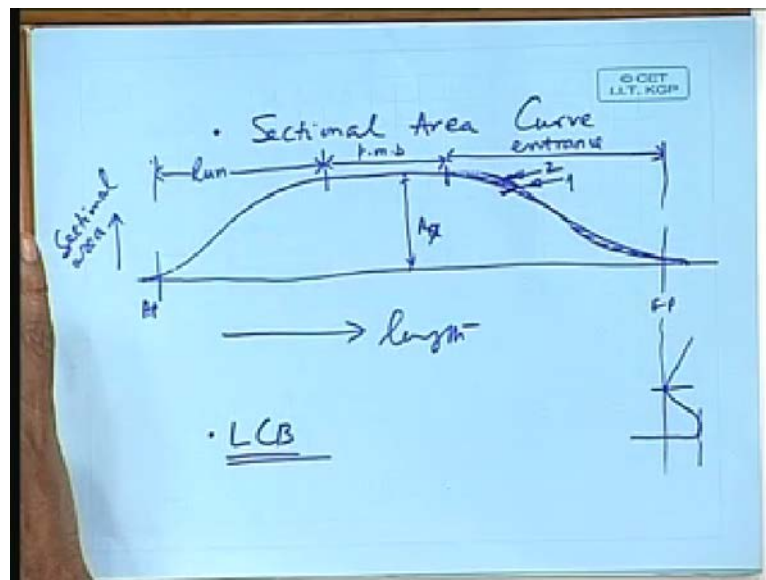 © CET
I.I.T. KGP
• Sectional Area Curve
run
p.m.b
entrance
2
1
Sectional
area
AP
FP
length
• LCB